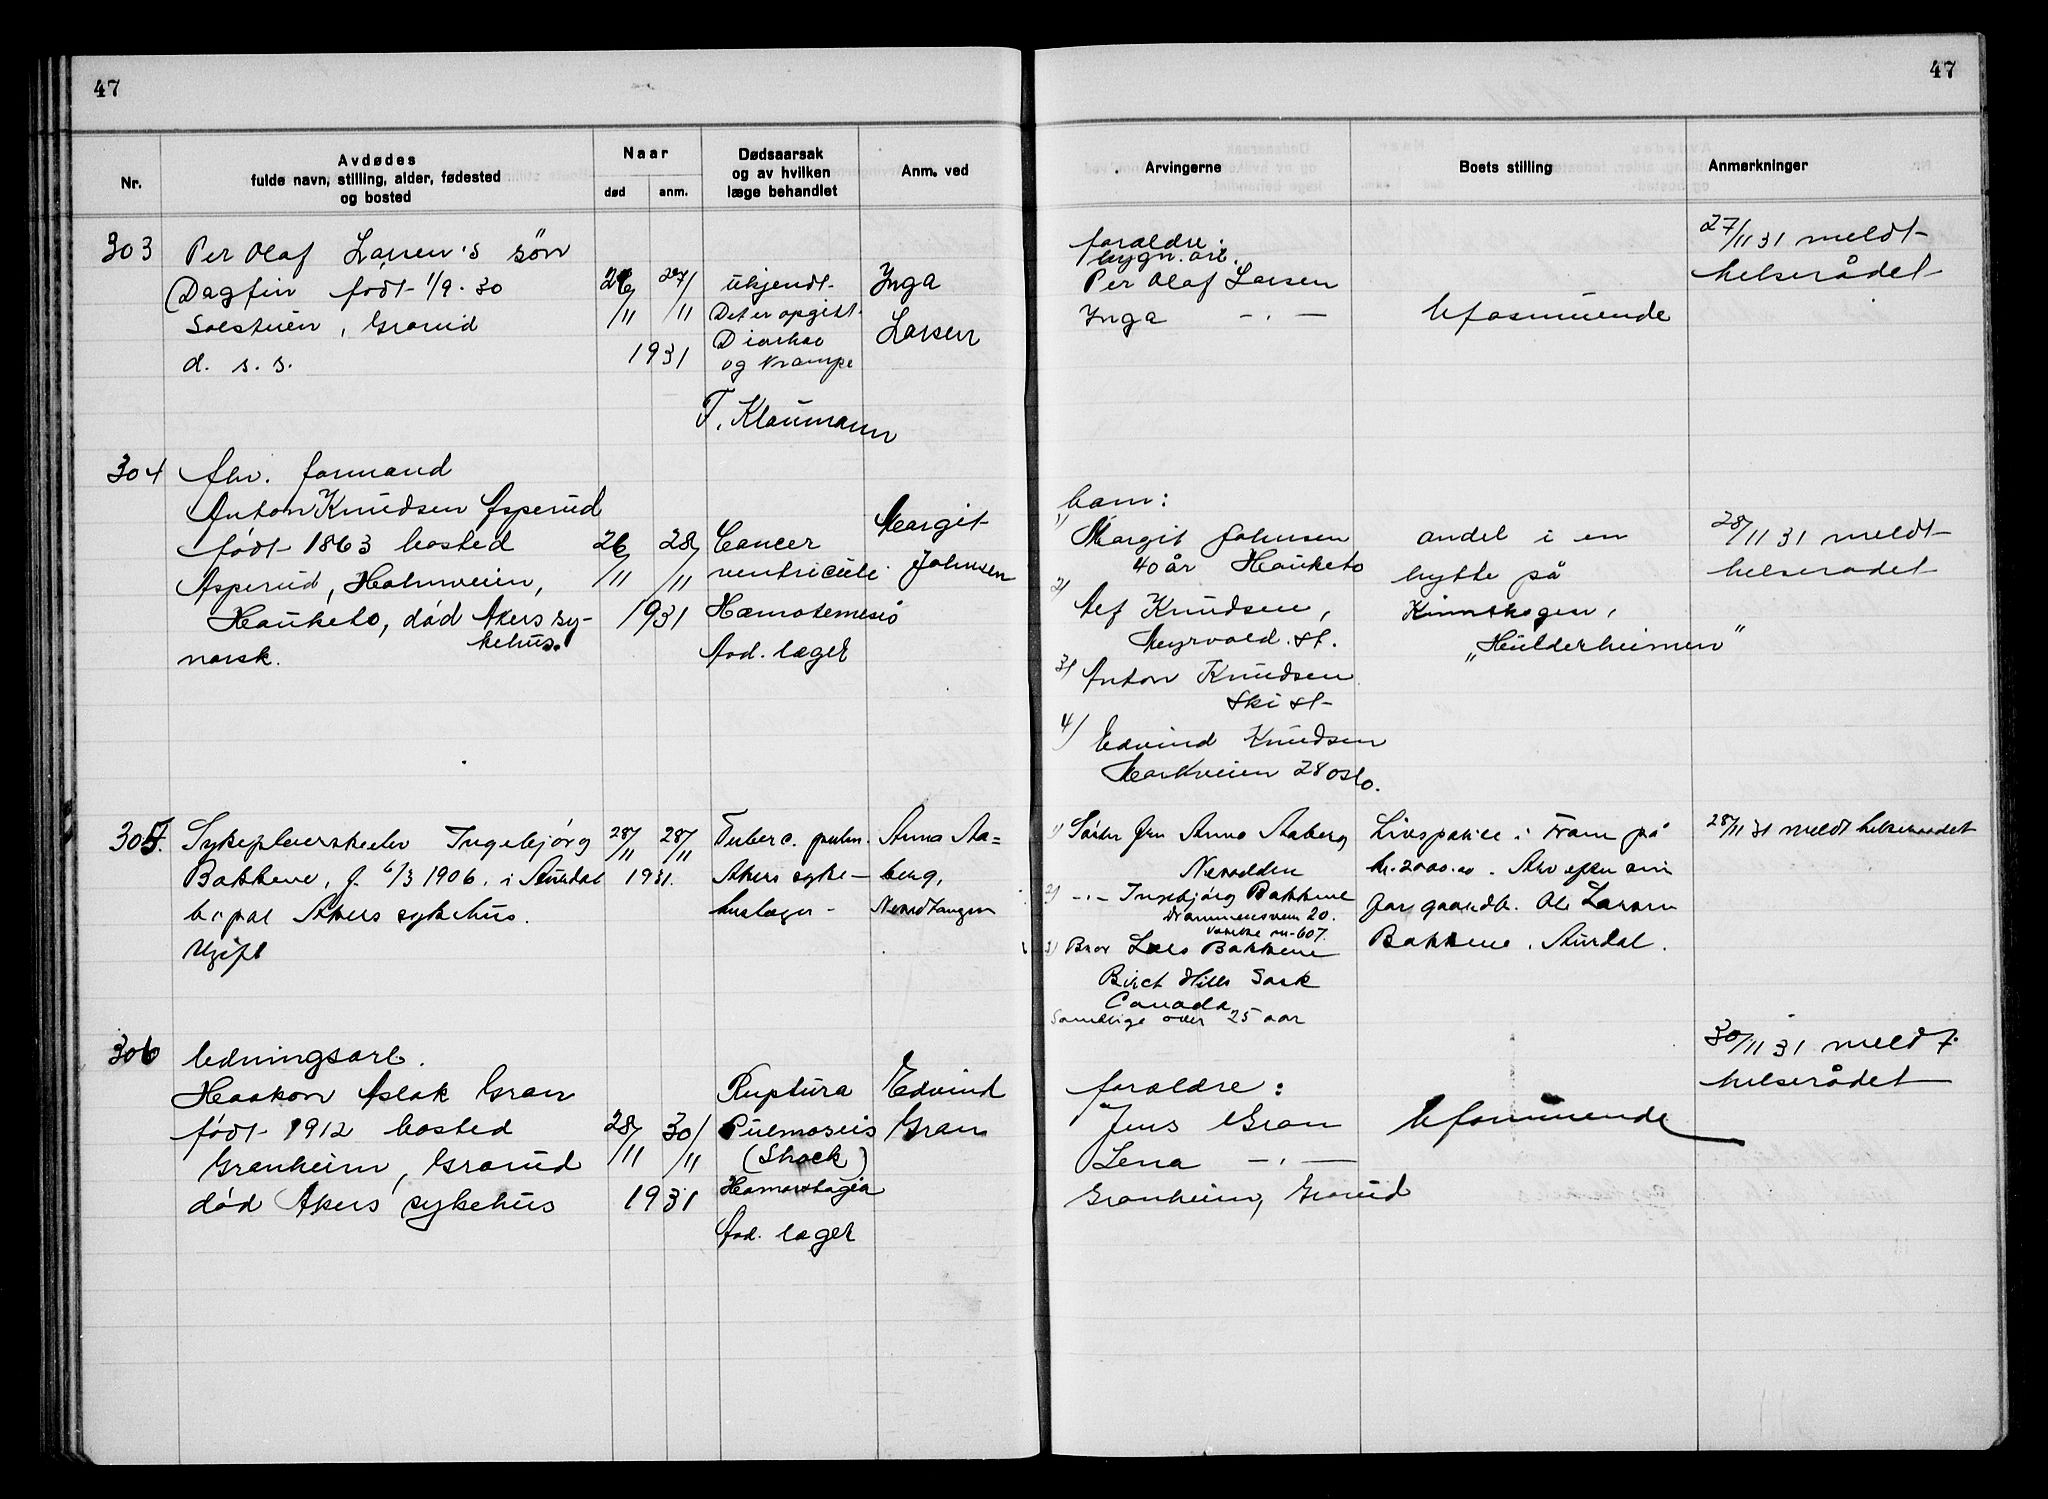 47
47
Nr.
Avdødes
fulde navn, stilling, alder, fødested
og bosted
Naar
død
anm.
Dødsaarsak
og av hvilken
læge behandlet
Anm. ved
Arvingerne
Boets stilling
Anmerkninger
303
Per Olaf Larsen's søn
Dagfin født 1/9-30
Solstuen, Grorud
d. s. s.
26/11
27/11
1931
Ukjendt
Det er opgitt
Diarhae
og Krampe
F. Klaumann
Inga
Larsen
foraldre:
bygn. arb.
Per Olaf Larsen
Inga -"-
Uformuende
27/11 31 meldt
helserådet
304
fhv. formand
Anton Knudsen Asperud
født 1863 bosted
Asperud, Holmveien,
Hauketo, død Akers sy-
kehus.
norsk.
26/11
28/11
1931
Cancer
ventriculi
Hæmatemesis
Avd. læger
Margit
Johnsen
barn:
1) Margit Johnsen
40 år Hauketo
2) Alf Knudsen,
Myrvold. st.
3) Anton Knudsen
Ski st
4) Edvind Knudsen
Markveien 28 Oslo.
andel i en
hytte på
„Hulderheimen"
28/11 31 meldt
helserådet
305.
Sykepleierskeelev Ingebjørg
Bakkene, f. 6/3 1906. i Aurdal
bopæl Akers sykehus.
Ugift
28/11
28/11
1931.
Tuberc. pulm.
Akers syke-
huslæger -
Anna Aa=
berg,
1) Søster fru Anna Aaberg
2) -"- Ingebjørg Bakkene
Drammensvein 20.
3) Bror Lars Bakkene
Birch Hills Sask
Canada
Samtlige over 25 aar
Livspolice i Fram på
kr. 2000.00. Arv efter sin
far gaardb. Ole Larsen
Bakkene, Aurdal.
28/11 31 meldt helseraadet
306
ledningsarb.
Haakon Aslak Gran
født 1912 bosted
Granheim, Grorud
død Akers sykehus
28/11
30/11
1931
Ruptura
Pulmonis
(Shock)
Avd. læger
Edvind
Gran
foraldre:
Jens Gran
Lena -"-
Granheim, Grorud
Uformuende
30/11 31 meldt
helserådet